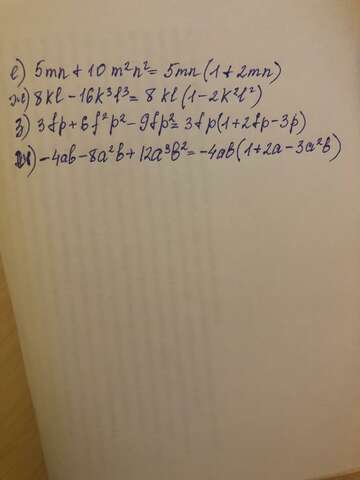 е) 5mn + 10 m²n² = 5mn (1 + 2mn)
ж) 8kl - 16k³l³ = 8 kl (1 - 2k²l²)
з) 3fp + 6f²p² - 9fp² = 3fp (1 + 2fp - 3p)
-4ab - 8a²b + 12a³b² = -4ab (1 + 2a - 3a²b)